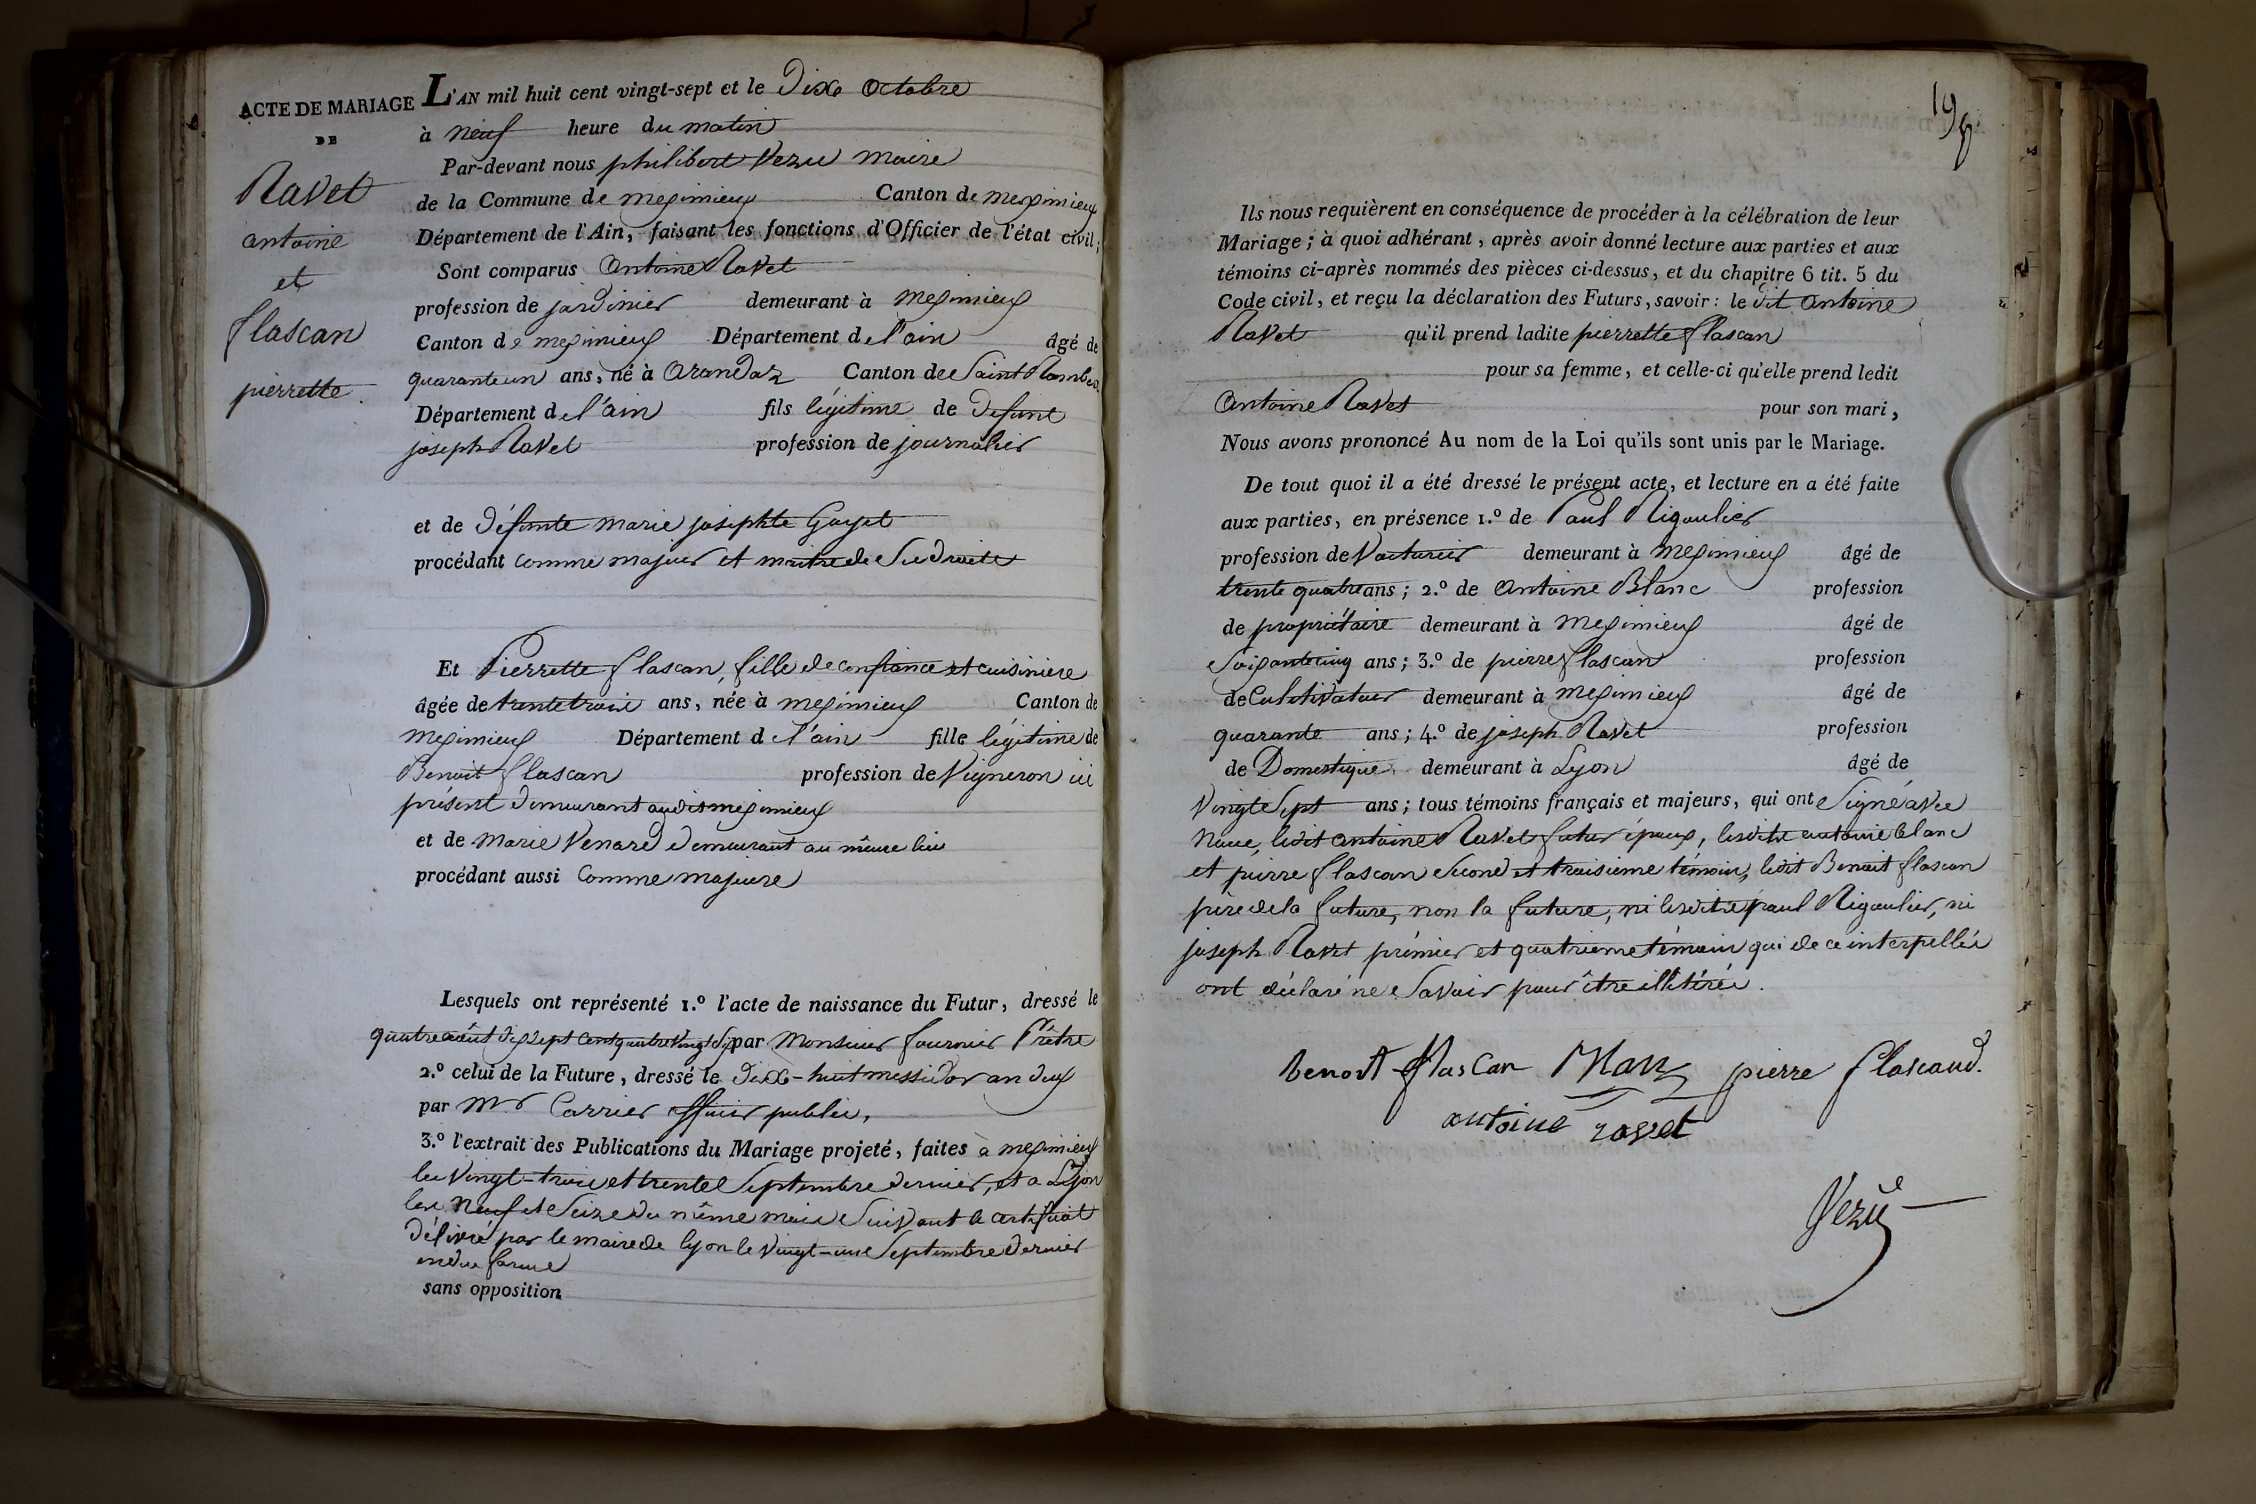 ACTE DE MARIAGE
DE
Ravet
antoine
et
flascan
pierrette.
L'AN mil huit cent vingt-sept et le Dix octobre
à neuf heure du matin
Par-devant nous philibert Vezu maire
de la Commune de meximieux Canton de meximieux
Département de l'Ain, faisant les fonctions d'Officier de l'état civil;
Sont comparus Antoine Ravet
profession de jardinier demeurant à meximieux
Canton de meximieux Département de l'ain âgé de
quarante un ans, né à Arandaz Canton de Saint Rambert
Département de l'ain fils légitime de defunt
joseph Ravet profession de journalier
et de défunte marie josephte Goyet
procédant comme majeur et maitre de Ses droits
Et Pierrette flascan, fille de confiance et cuisiniere
âgée de trente trois ans, née à meximieux Canton de
meximieux Département de l'ain fille légitime de
Benoit flascan profession de Vigneron ici
présent demeurant audit meximieux
et de marie Venard demeurant au même lieu
procédant aussi Comme majeure
Lesquels ont représenté 1.º l'acte de naissance du Futur, dressé le
quatre août dix sept cent quatre vingt six par Monsieur fournier Prêtre
2.º celui de la Future, dressé le dix-huit messidor an deux
par Mr Carrier officier public,
3.º l'extrait des Publications du Mariage projeté, faites à meximieux
les Vingt-trois et trente Septembre dernier, et a Lyon
les Neuf et Seize du même mois Suivant le certificat
délivré par le maire de lyon le Vingt-un Septembre dernier
en due forme
sans opposition
Ils nous requièrent en conséquence de procéder à la célébration de leur
Mariage; à quoi adhérant, après avoir donné lecture aux parties et aux
témoins ci-après nommés des pièces ci-dessus, et du chapitre 6 tit. 5 du
Code civil, et reçu la déclaration des Futurs, savoir: le dit Antoine
Ravet qu'il prend ladite pierrette flascan
pour sa femme, et celle-ci qu'elle prend ledit
Antoine Ravet pour son mari,
Nous avons prononcé Au nom de la Loi qu'ils sont unis par le Mariage.
De tout quoi il a été dressé le présent acte, et lecture en a été faite
aux parties, en présence 1.º de Paul Rigoulier
profession de Voiturier demeurant à meximieux âgé de
trente quatre ans; 2.º de Antoine Blanc profession
de propriétaire demeurant à meximieux âgé de
Soixante cinq ans; 3.º de pierre flascan profession
de Cultivateur demeurant à meximieux âgé de
quarante ans; 4.º de joseph Ravet profession
de Domestique demeurant à Lyon âgé de
Vingt Sept ans; tous témoins français et majeurs, qui ont Signé avec
Nous, ledit antoine Ravet futur époux, lesdits antoine blanc
et pierre flascan Second et troisieme témoins, ledit Benoit flascan
pere de la future, non la future, ni lesdits paul Rigoulier, ni
joseph Ravet prémier et quatrieme témoins qui de ce interpellés
ont déclaré ne Savoir pour être illitérés.
benoit flascan Blanc pierre flascand.
antoine ravet
Vezu